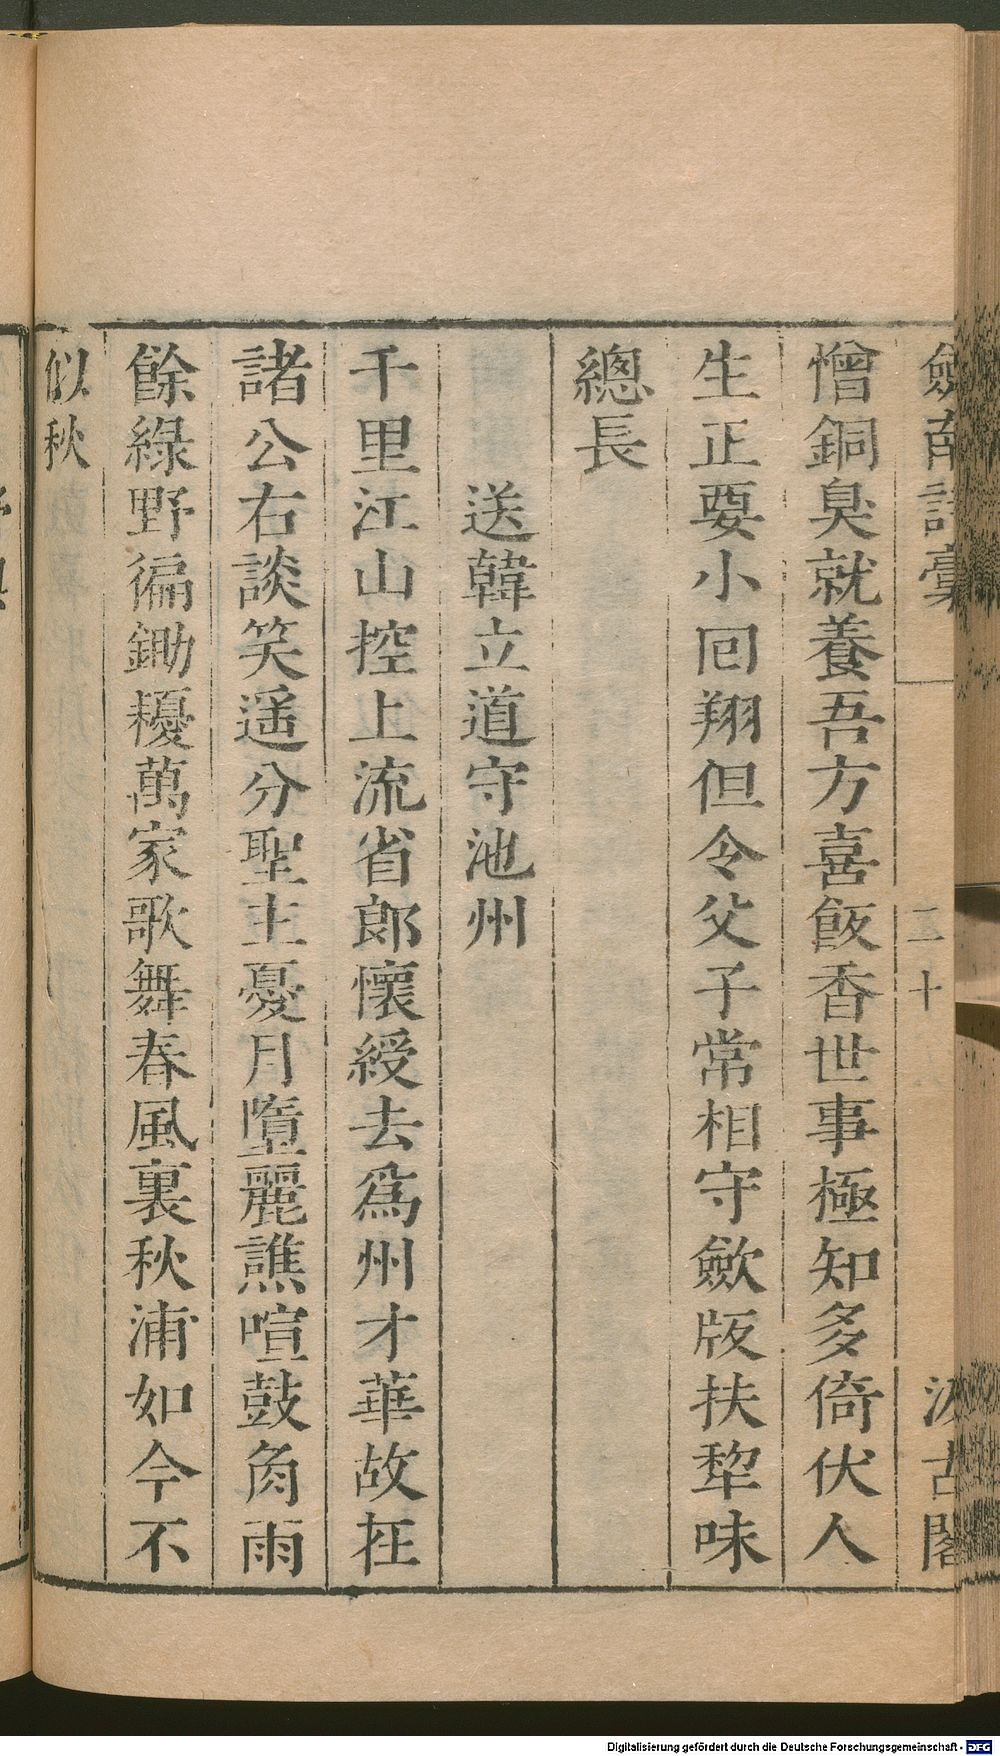 劍南詩稾
二十
汲古閣
憎銅臭就養吾方喜飯香世事極知多倚伏人
生正要小囘翔但令父子常相守歛版扶犂味
總長
送韓立道守池州
千里江山控上流省郎懷綬去爲州才華故在
諸公右談笑遥分聖主憂月墮麗譙喧鼓角雨
餘綠野徧鋤耰萬家歌舞春風裏秋浦如今不
似秋
Digitalisierung gefördert durch die Deutsche Forschungsgemeinschaft - DFG